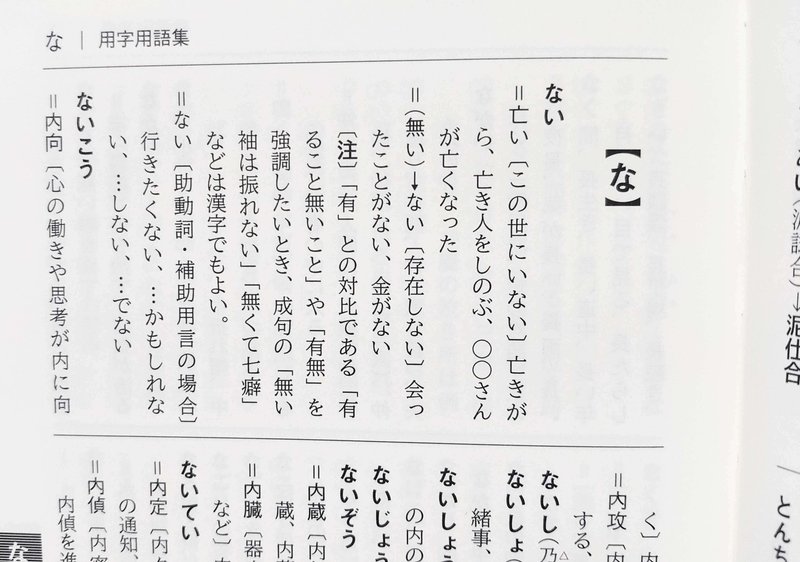 な｜用字用語集
【な】
ない
＝亡い〔この世にいない〕亡きが
ら、亡き人をしのぶ、〇〇さん
が亡くなった
＝(無い)→ない〔存在しない〕会っ
たことがない、金がない
〔注〕「有」との対比である「有
ること無いこと」や「有無」を
強調したいとき、成句の「無い
袖は振れない」「無くて七癖」
などは漢字でもよい。
＝ない〔助動詞・補助用言の場合〕
行きたくない、…かもしれな
い、…しない、…でない
ないこう
＝内向〔心の働きや思考が内に向
く〕内
＝内攻〔内
する、
ないし(乃
ないしょ(
緒事、
ないしょう
の内の
ないじょう
ないぞう
＝内蔵〔内
蔵、内蔵
＝内臓〔器
など〕内
ないてい
＝内定〔内
の通知、
＝内偵〔内密
内偵を進
な
(泥試合)→泥仕合
とんち